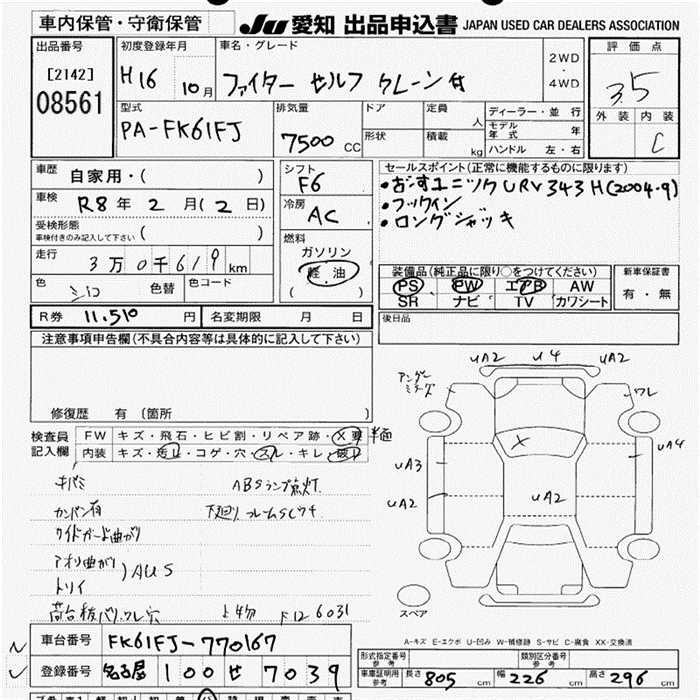 車内保管・守衛保管
JU 愛知 出品申込書 JAPAN USED CAR DEALERS ASSOCIATION
出品番号
[2142]
08561
初度登録年月
H16 10月
車名・グレード
ファイター セルフ クレーン付
2WD
・
4WD
評価点
3.5
外装 内装
C
型式
PA-FK61FJ
排気量
7500 CC
ドア
形状
定員 人
積載 kg
ディーラー・並行
モデル年式 年
ハンドル 左・右
車歴 自家用・( )
車検 R8年 2月(2日)
受検形態
車検付きのみ記入して下さい ( )
走行 3万0千619km
色 シロ 色替 色コード
シフト
F6
冷房
AC
燃料
ガソリン
軽油
( )
セールスポイント(正常に機能するものに限ります)
・おこすユニック URV343H(2004.9)
・フックイン
・ロングジャッキ
装備品(純正品に限り○をつけてください)
PS PW エアB AW
SR ナビ TV カワシート
新車保証書
有・無
R券 11,510円 名変期限 月 日
後日品
注意事項申告欄(不具合内容等は具体的に記入して下さい)
修復歴 有(箇所 )
検査員
記入欄
FW キズ・飛石・ヒビ割・リペア跡・X要 半面
内装 キズ・汚レ・コゲ・穴・スレ・キレ・破レ
キバミ ABSランプ点灯
カンバン有 下廻りフレームSCフキ
サイドガード曲がり
アオリ曲がり
トリイ
)AUS
荷台板バリ、ワレ、穴
6031
アンダーミラーキズ
UA2 U4 UA2
ワレ
X
UA3
UA4
UA2
UA2
スペア
A-キズ E-エクボ U-凹み W-補修跡 S-サビ C-腐食 XX-交換済
車台番号 FK61FJ-770167
登録番号 名古屋 100 せ 7039
形式指定番号 参考
類別区分番号 参考
車庫証明用 参考 長さ 805 cm 幅 226 cm 高さ 296 cm